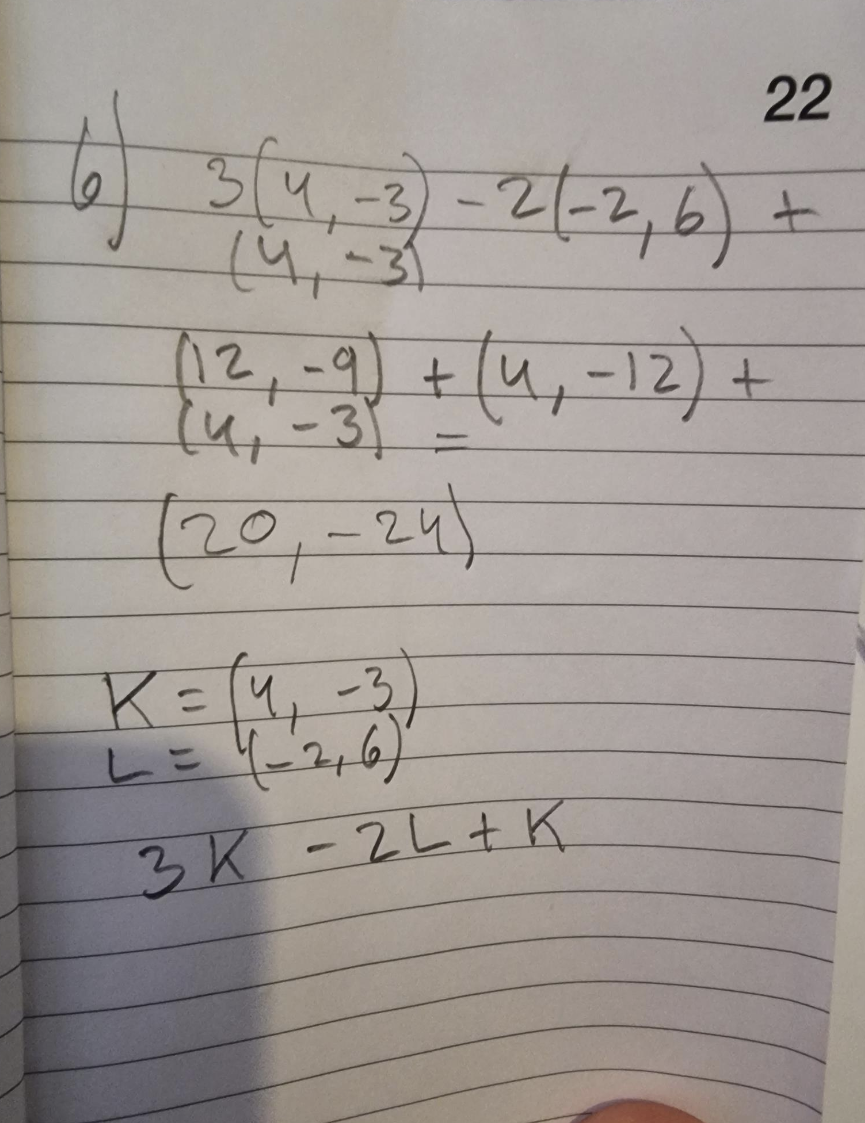 22
6) 3(4, -3) - 2(-2, 6) +
(4, -3)
(12, -9) + (4, -12) +
(4, -3) =
(20, -24)
K = (4, -3)
L = (-2, 6)
3K - 2L + K